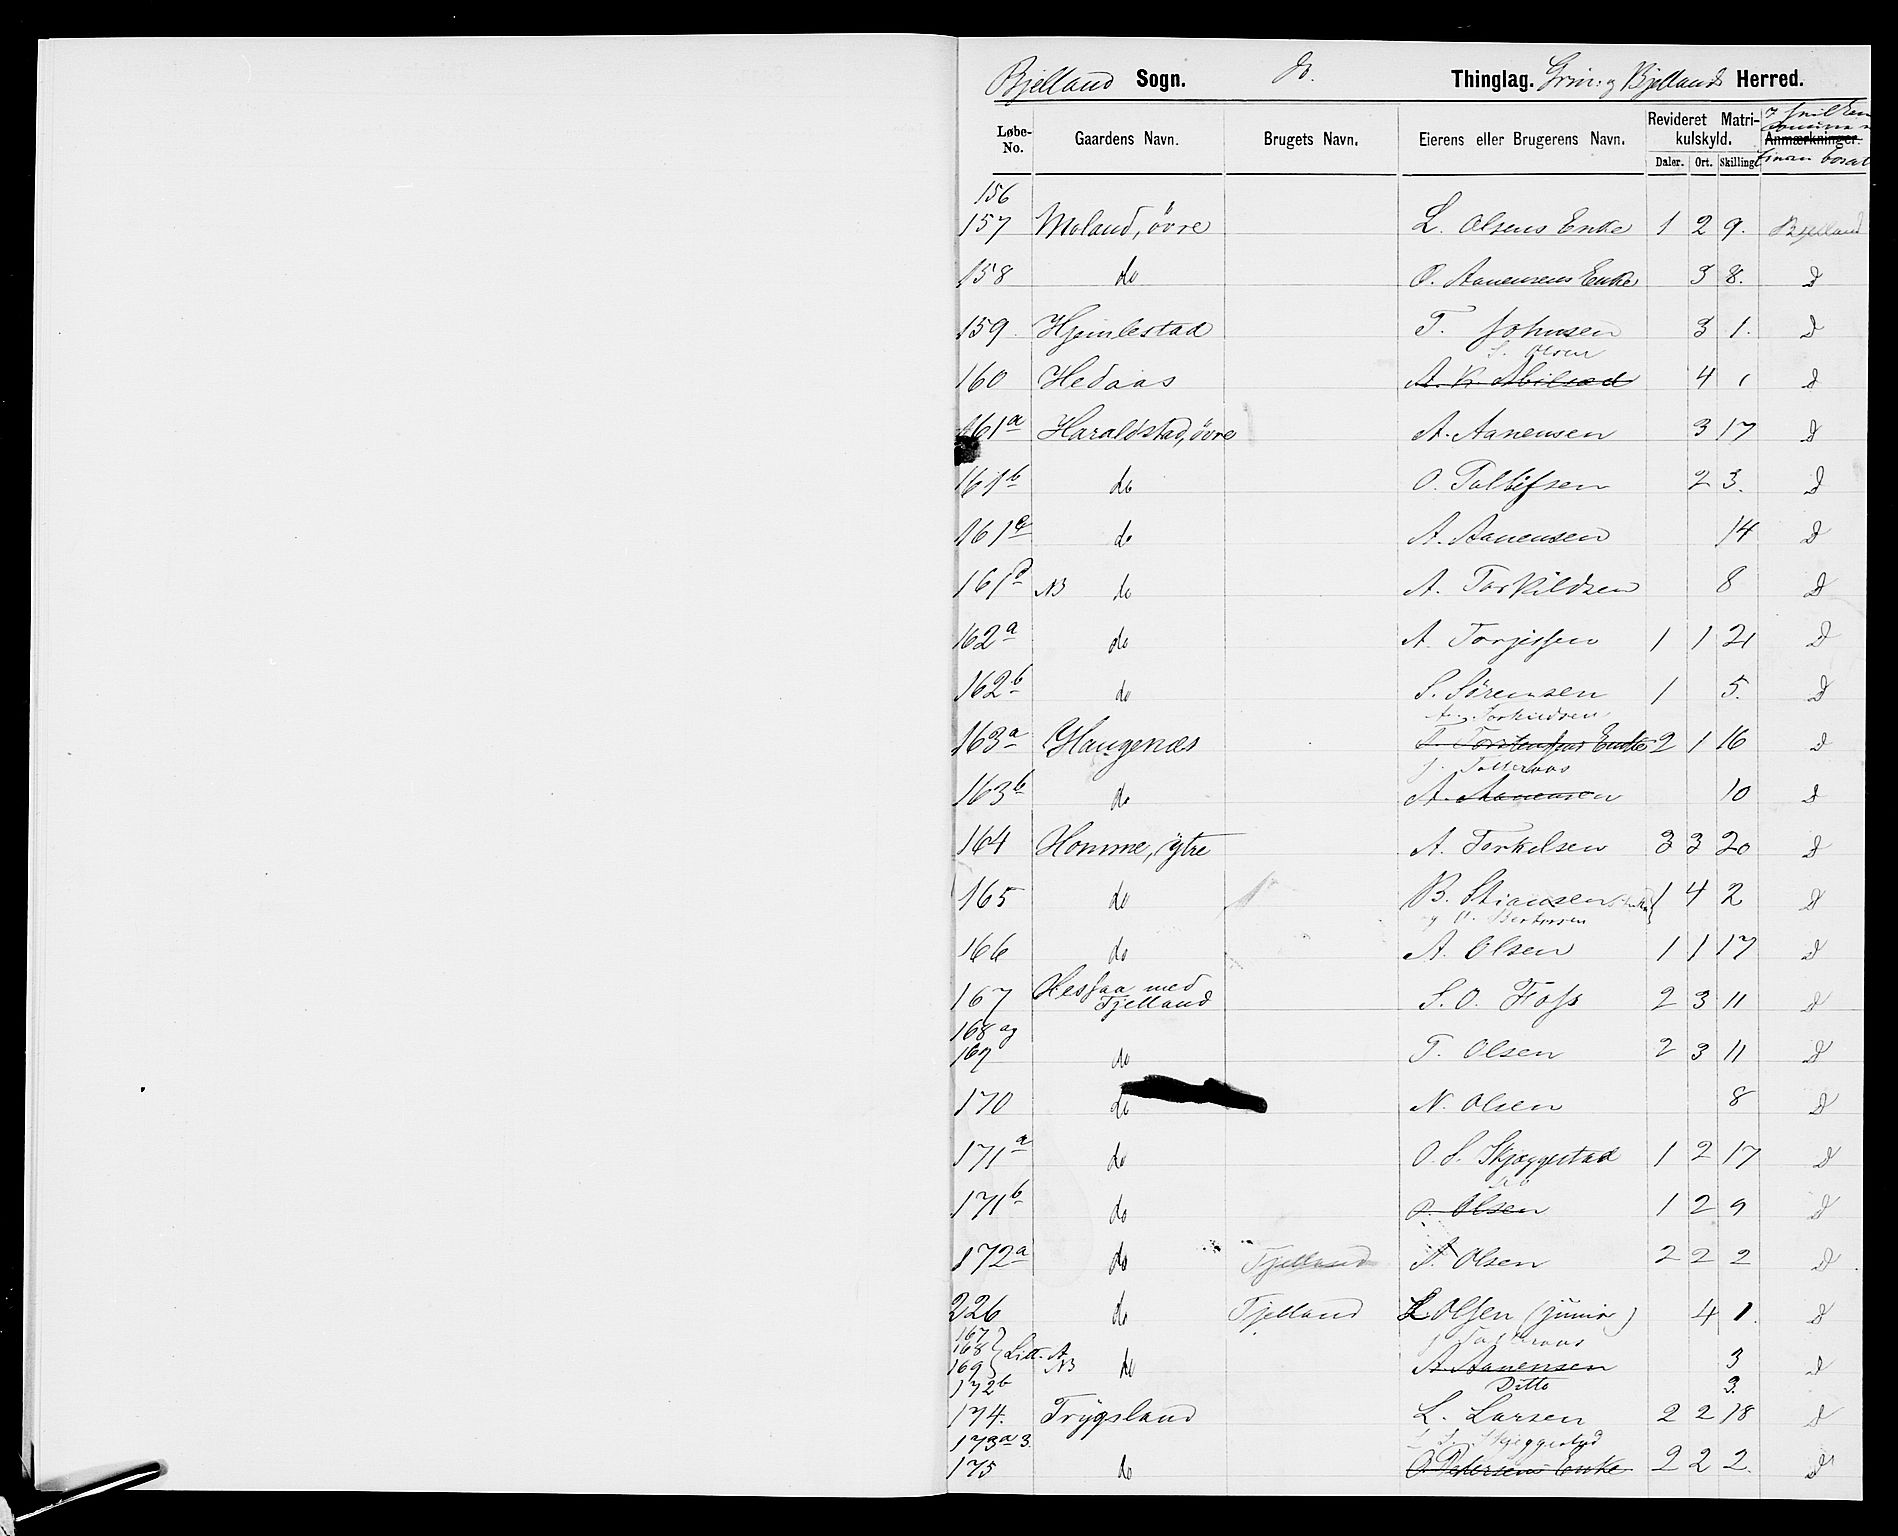 Bjelland Sogn. do. Thinglag. Grin. og Bjellands Herred.
Løbe-No. Gaardens Navn. Brugets Navn. Eierens eller Brugerens Navn. Revideret Matrikulskyld. Anmærkninger.
Daler. Ort. Skilling.
156
157 Moland, övre L. Olsens Enke 1 2 9. Bjelland
158 do O. Aanensens Enke 3 8. D
159 Hjemlestad T. Johnsen 3 1. D
S. Olsen
160 Hedaas A. K. Abilsod 4 1 D
161 a Haraldstad, övre A. Aanensen 3 17 D
161 b do O. Tallifsen 2 3. D
161 c do A. Aanensen 14 D
161 d NB do A. Torkildsen 8 D
162 a do A. Torjessen 1 1 21 D
162 b do S. Sörensen 1 5. D
A. Torkildsen
163 a Haugenæs T. Torstensens Enke 2 1 16 D
163 b do A. Aanensen 10 D
164 Homme, ytre A. Torkelsen 3 3 20 D
165 do B. Stiansen 1 4 2 D
166 do A. Olsen 1 1 17 D
167 Hessaa med Fjelland S. O. Foss 2 3 11 D
168 og
169 do T. Olsen 2 3 11 D
170 do N. Olsen 8 D
171 a do O. S. Skjæggestad 1 2 17 D
171 b do O. Olsen 1 2 9 D
172 a do Fjelland A. Olsen 2 2 2 D
226 do Fjelland L. Olsen (junior) 4 1 D
167
168 Litt. A
169 NB do A. Aanensen 3 D
172 b Ditto 3.
174. Trygsland L. Larsen 2 2 18 D
173 a 3. Skjeggestad
175 do O. Pedersens Enke 2 2 2. D